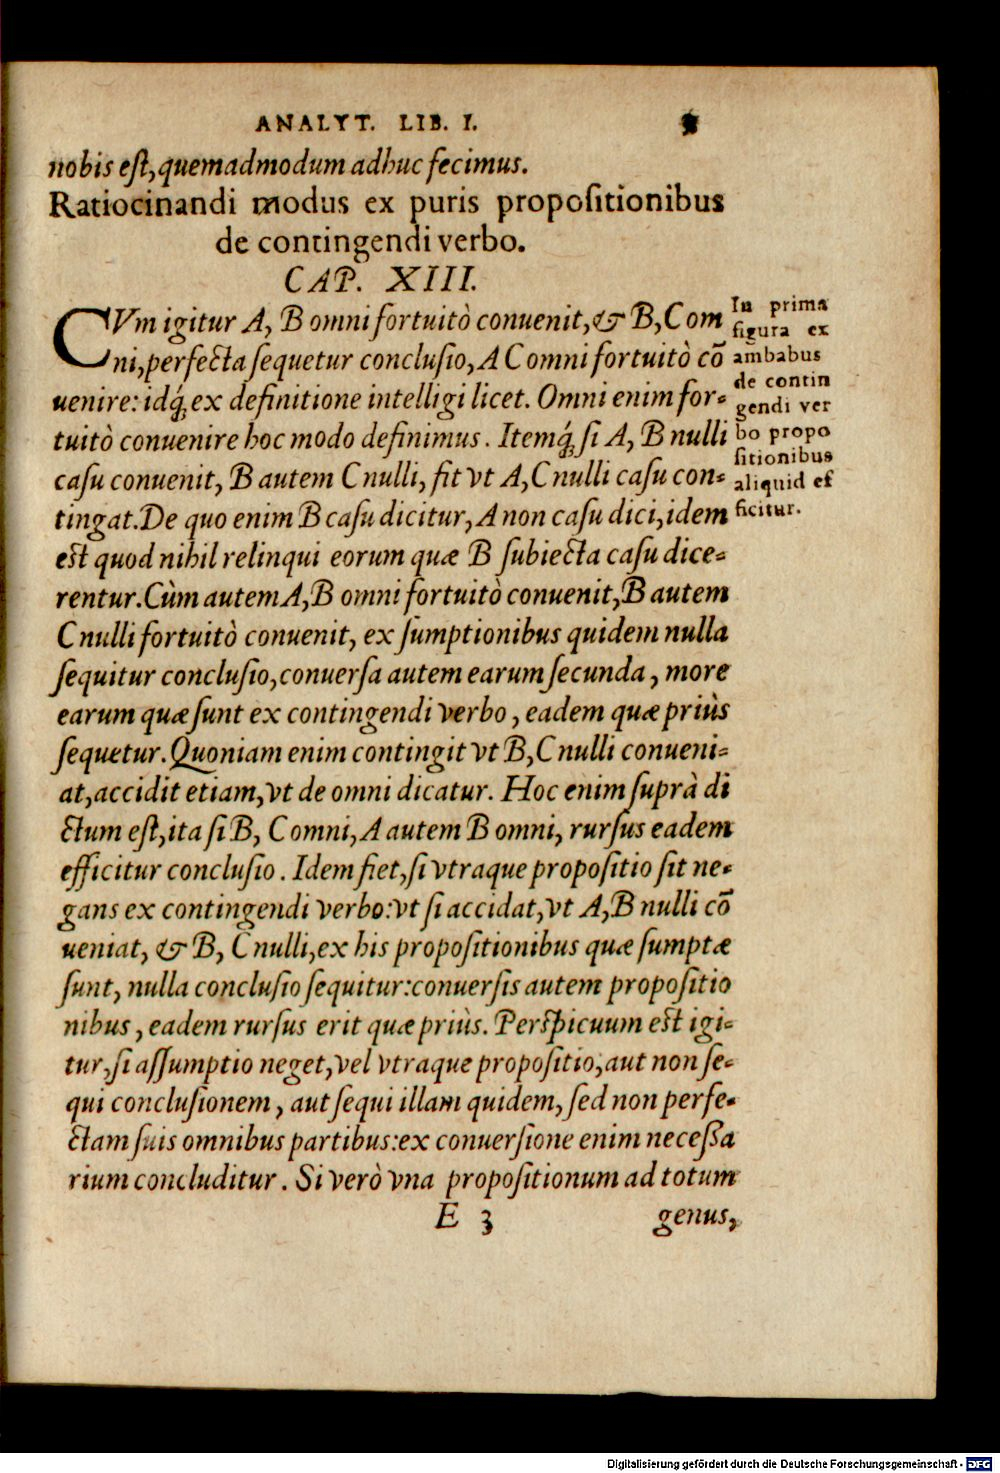 ANALYT. LIB. I.
nobis est, quemadmodum adhuc fecimus.
Ratiocinandi modus ex puris propositionibus
de contingendi verbo.
CAP. XIII.
CVm igitur A, B omni fortuitò conuenit, & B, C om
ni, perfecta sequetur conclusio, A C omni fortuitò cō
uenire: idq́; ex definitione intelligi licet. Omni enim for-
tuitò conuenire hoc modo definimus. Itemq́; si A, B nulli
casu conuenit, B autem C nulli, fit vt A, C nulli casu con-
tingat. De quo enim B casu dicitur, A non casu dici, idem
est quod nihil relinqui eorum quæ B subiecta casu dice-
rentur. Cùm autem A, B omni fortuitò conuenit, B autem
C nulli fortuitò conuenit, ex sumptionibus quidem nulla
sequitur conclusio, conuersa autem earum secunda, more
earum quæ sunt ex contingendi verbo, eadem quæ priùs
sequetur. Quoniam enim contingit vt B, C nulli conueni-
at, accidit etiam, vt de omni dicatur. Hoc enim suprà di
ctum est, ita si B, C omni, A autem B omni, rursus eadem
efficitur conclusio. Idem fiet, si vtraque propositio sit ne-
gans ex contingendi verbo: vt si accidat, vt A, B nulli cō
ueniat, & B, C nulli, ex his propositionibus quæ sumptæ
sunt, nulla conclusio sequitur: conuersis autem propositio
nibus, eadem rursus erit quæ priùs. Perspicuum est igi-
tur, si assumptio neget, vel vtraque propositio, aut non se-
qui conclusionem, aut sequi illam quidem, sed non perfe-
ctam suis omnibus partibus: ex conuersione enim necessa
rium concluditur. Si verò vna propositionum ad totum
E 3 genus,
In prima
figura ex
ambabus
de contin
gendi ver
bo propo
sitionibus
aliquid ef
ficitur.
Digitalisierung gefördert durch die Deutsche Forschungsgemeinschaft - DFG